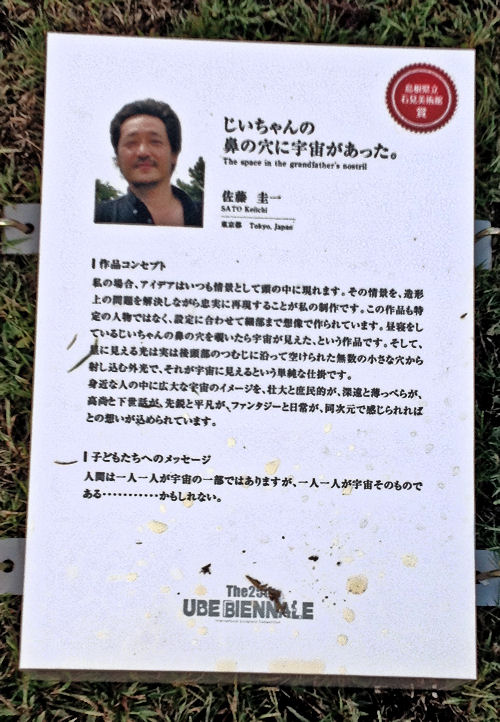 島根県立
石見美術館
賞
じいちゃんの
鼻の穴に宇宙があった。
The space in the grandfather's nostril
佐藤 圭一
SATO Keiichi
東京都 Tokyo, Japan
作品コンセプト
私の場合、アイデアはいつも情景として頭の中に現れます。その情景を、造形
上の問題を解決しながら忠実に再現することが私の制作です。この作品も特
定の人物ではなく、設定に合わせて細部まで想像で作られています。昼寝をし
ているじいちゃんの鼻の穴を覗いたら宇宙が見えた、という作品です。そして、
星に見える光は実は後頭部のつむじに沿って空けられた無数の小さな穴から
射し込む外光で、それが宇宙に見えるという単純な仕掛です。
身近な人の中に広大な宇宙のイメージを、壮大と庶民的が、深遠と薄っぺらが、
高尚と下世話が、先鋭と平凡が、ファンタジーと日常が、同次元で感じられれば
との想いが込められています。
子どもたちへのメッセージ
人間は一人一人が宇宙の一部ではありますが、一人一人が宇宙そのもので
ある・・・・・・・・・・・かもしれない。
The 25th
UBE BIENNALE
International Sculpture Competition